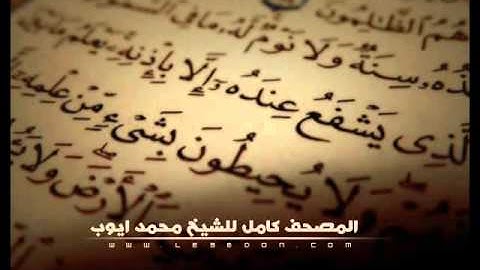 هُمُ ٱلظَّٰلِمُونَ
سِنَةٌ وَلَا نَوْمٌ لَّهُۥ مَا فِى
ٱلَّذِى يَشْفَعُ عِندَهُۥٓ إِلَّا بِإِذْنِهِۦ يَعْلَمُ مَا بَيْنَ
وَلَا يُحِيطُونَ بِشَىْءٍ مِّنْ عِلْمِهِۦٓ
ٱلْأَرْضَ وَلَا
المصحف كامل للشيخ محمد ايوب
www.lesoon.com